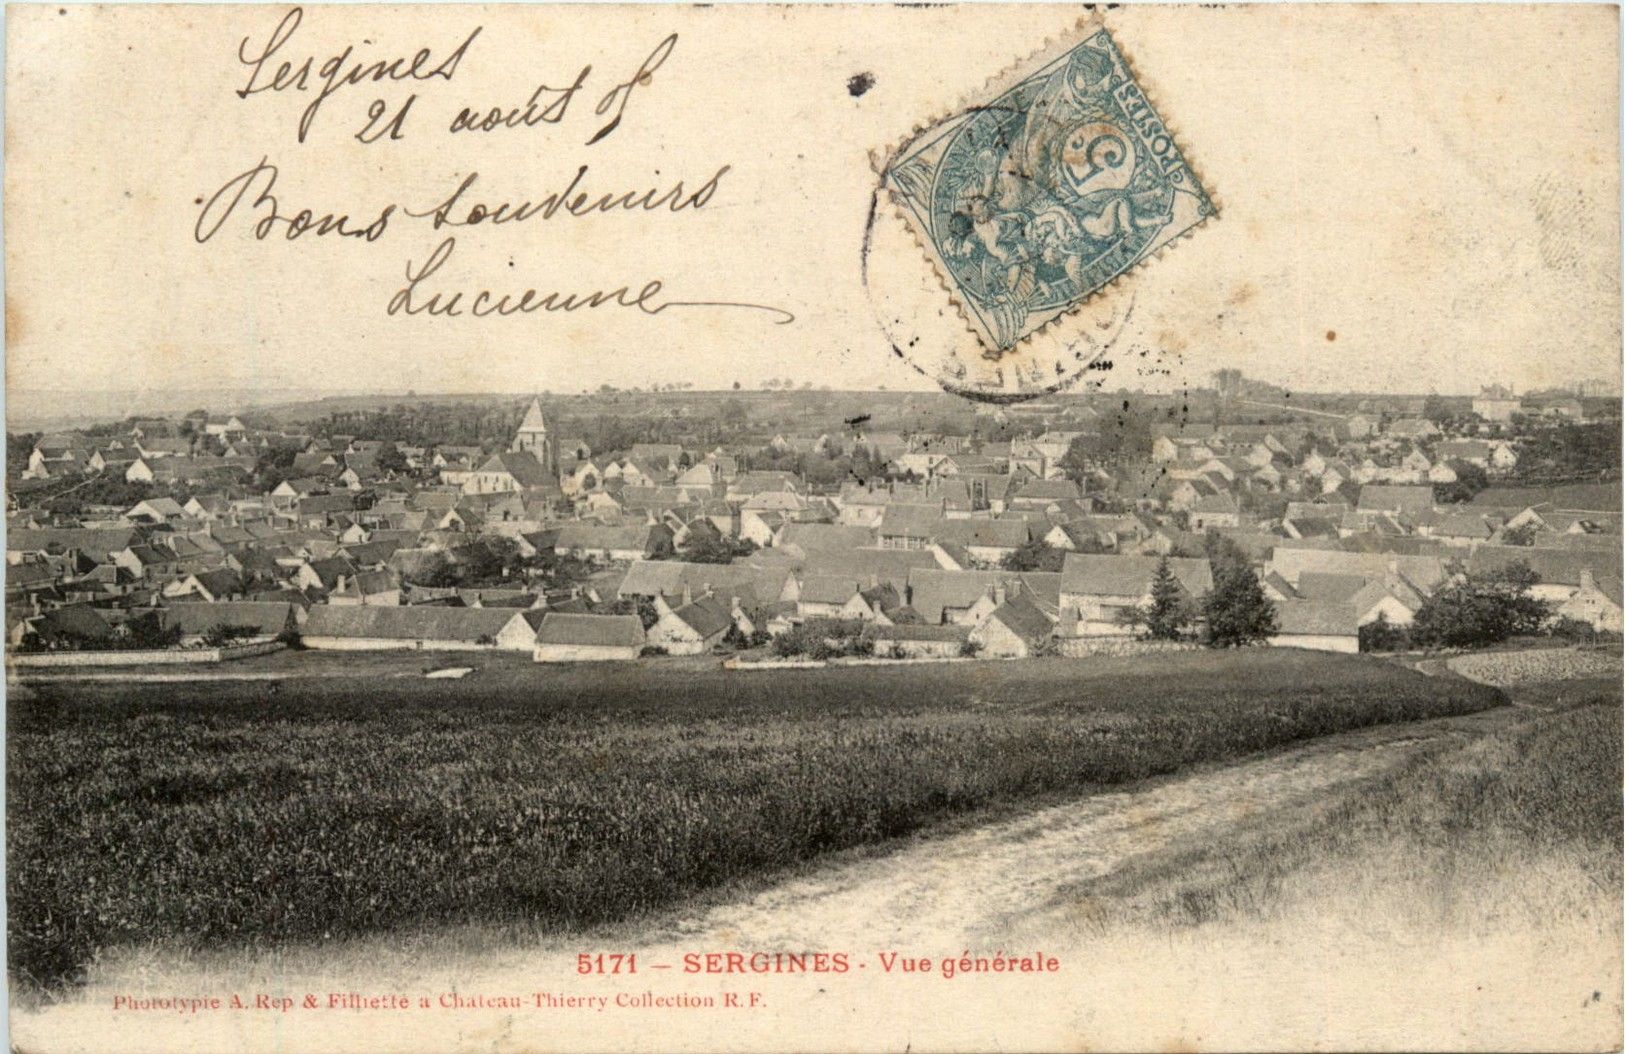 Sergines
21 août 05
Bons souvenirs
Lucienne
5c
POSTES
5171 – SERGINES - Vue générale
Phototypie A. Rep & Filliette à Chateau-Thierry Collection R. F.